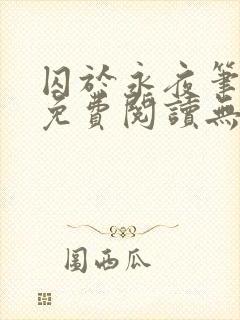 囚於永夜筆
免費閱讀無
西瓜